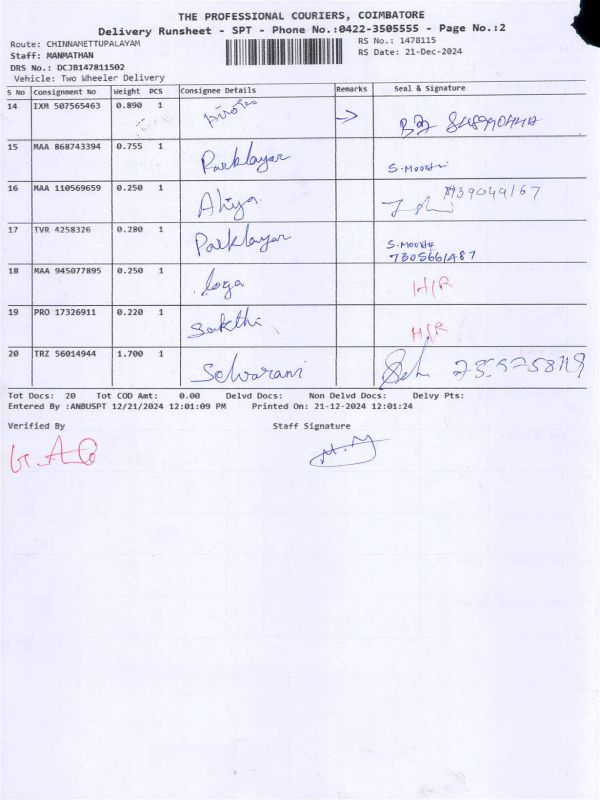 THE PROFESSIONAL COURIERS, COIMBATORE
Delivery Runsheet - SPT - Phone No.:0422-3505555 - Page No.:2
Route: CHINNAMETTUPALAYAM RS No.: 1478115
Staff: MANMATHAN RS Date: 21-Dec-2024
DRS No.: DCJB147811502
Vehicle: Two Wheeler Delivery
S No Consignment No Weight PCS Consignee Details Remarks Seal & Signature
14 IXM 507565463 0.890 1
15 MAA 868743394 0.755 1 Parklayar S.Moorthi
16 MAA 110569659 0.250 1 Aliya
17 TVR 4258326 0.280 1 Parklayar S.Moorthi
7305661487
18 MAA 945077895 0.250 1 loga H/R
19 PRO 17326911 0.220 1 Sakthi H/R
20 TRZ 56014944 1.700 1 Selvarani
Tot Docs: 20 Tot COD Amt: 0.00 Delvd Docs: Non Delvd Docs: Delvy Pts:
Entered By :ANBUSPT 12/21/2024 12:01:09 PM Printed On: 21-12-2024 12:01:24
Verified By Staff Signature